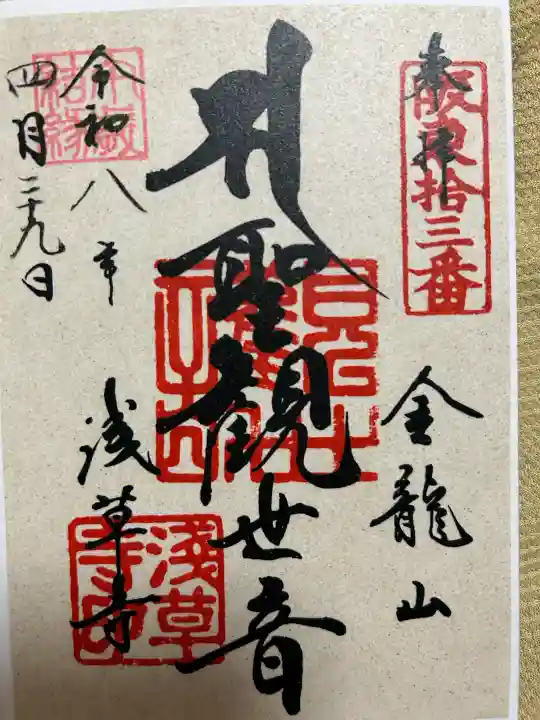 奉拝
坂東拾三番
金龍山
聖観世音
浅草寺
令和八年
四月二十九日
浅草寺印